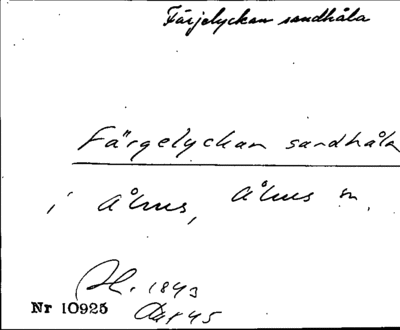 Färjelyckan sandhåla
Färgelyckan sandhåla
i Åhus, Åhus sn.
1843
Nr 10925